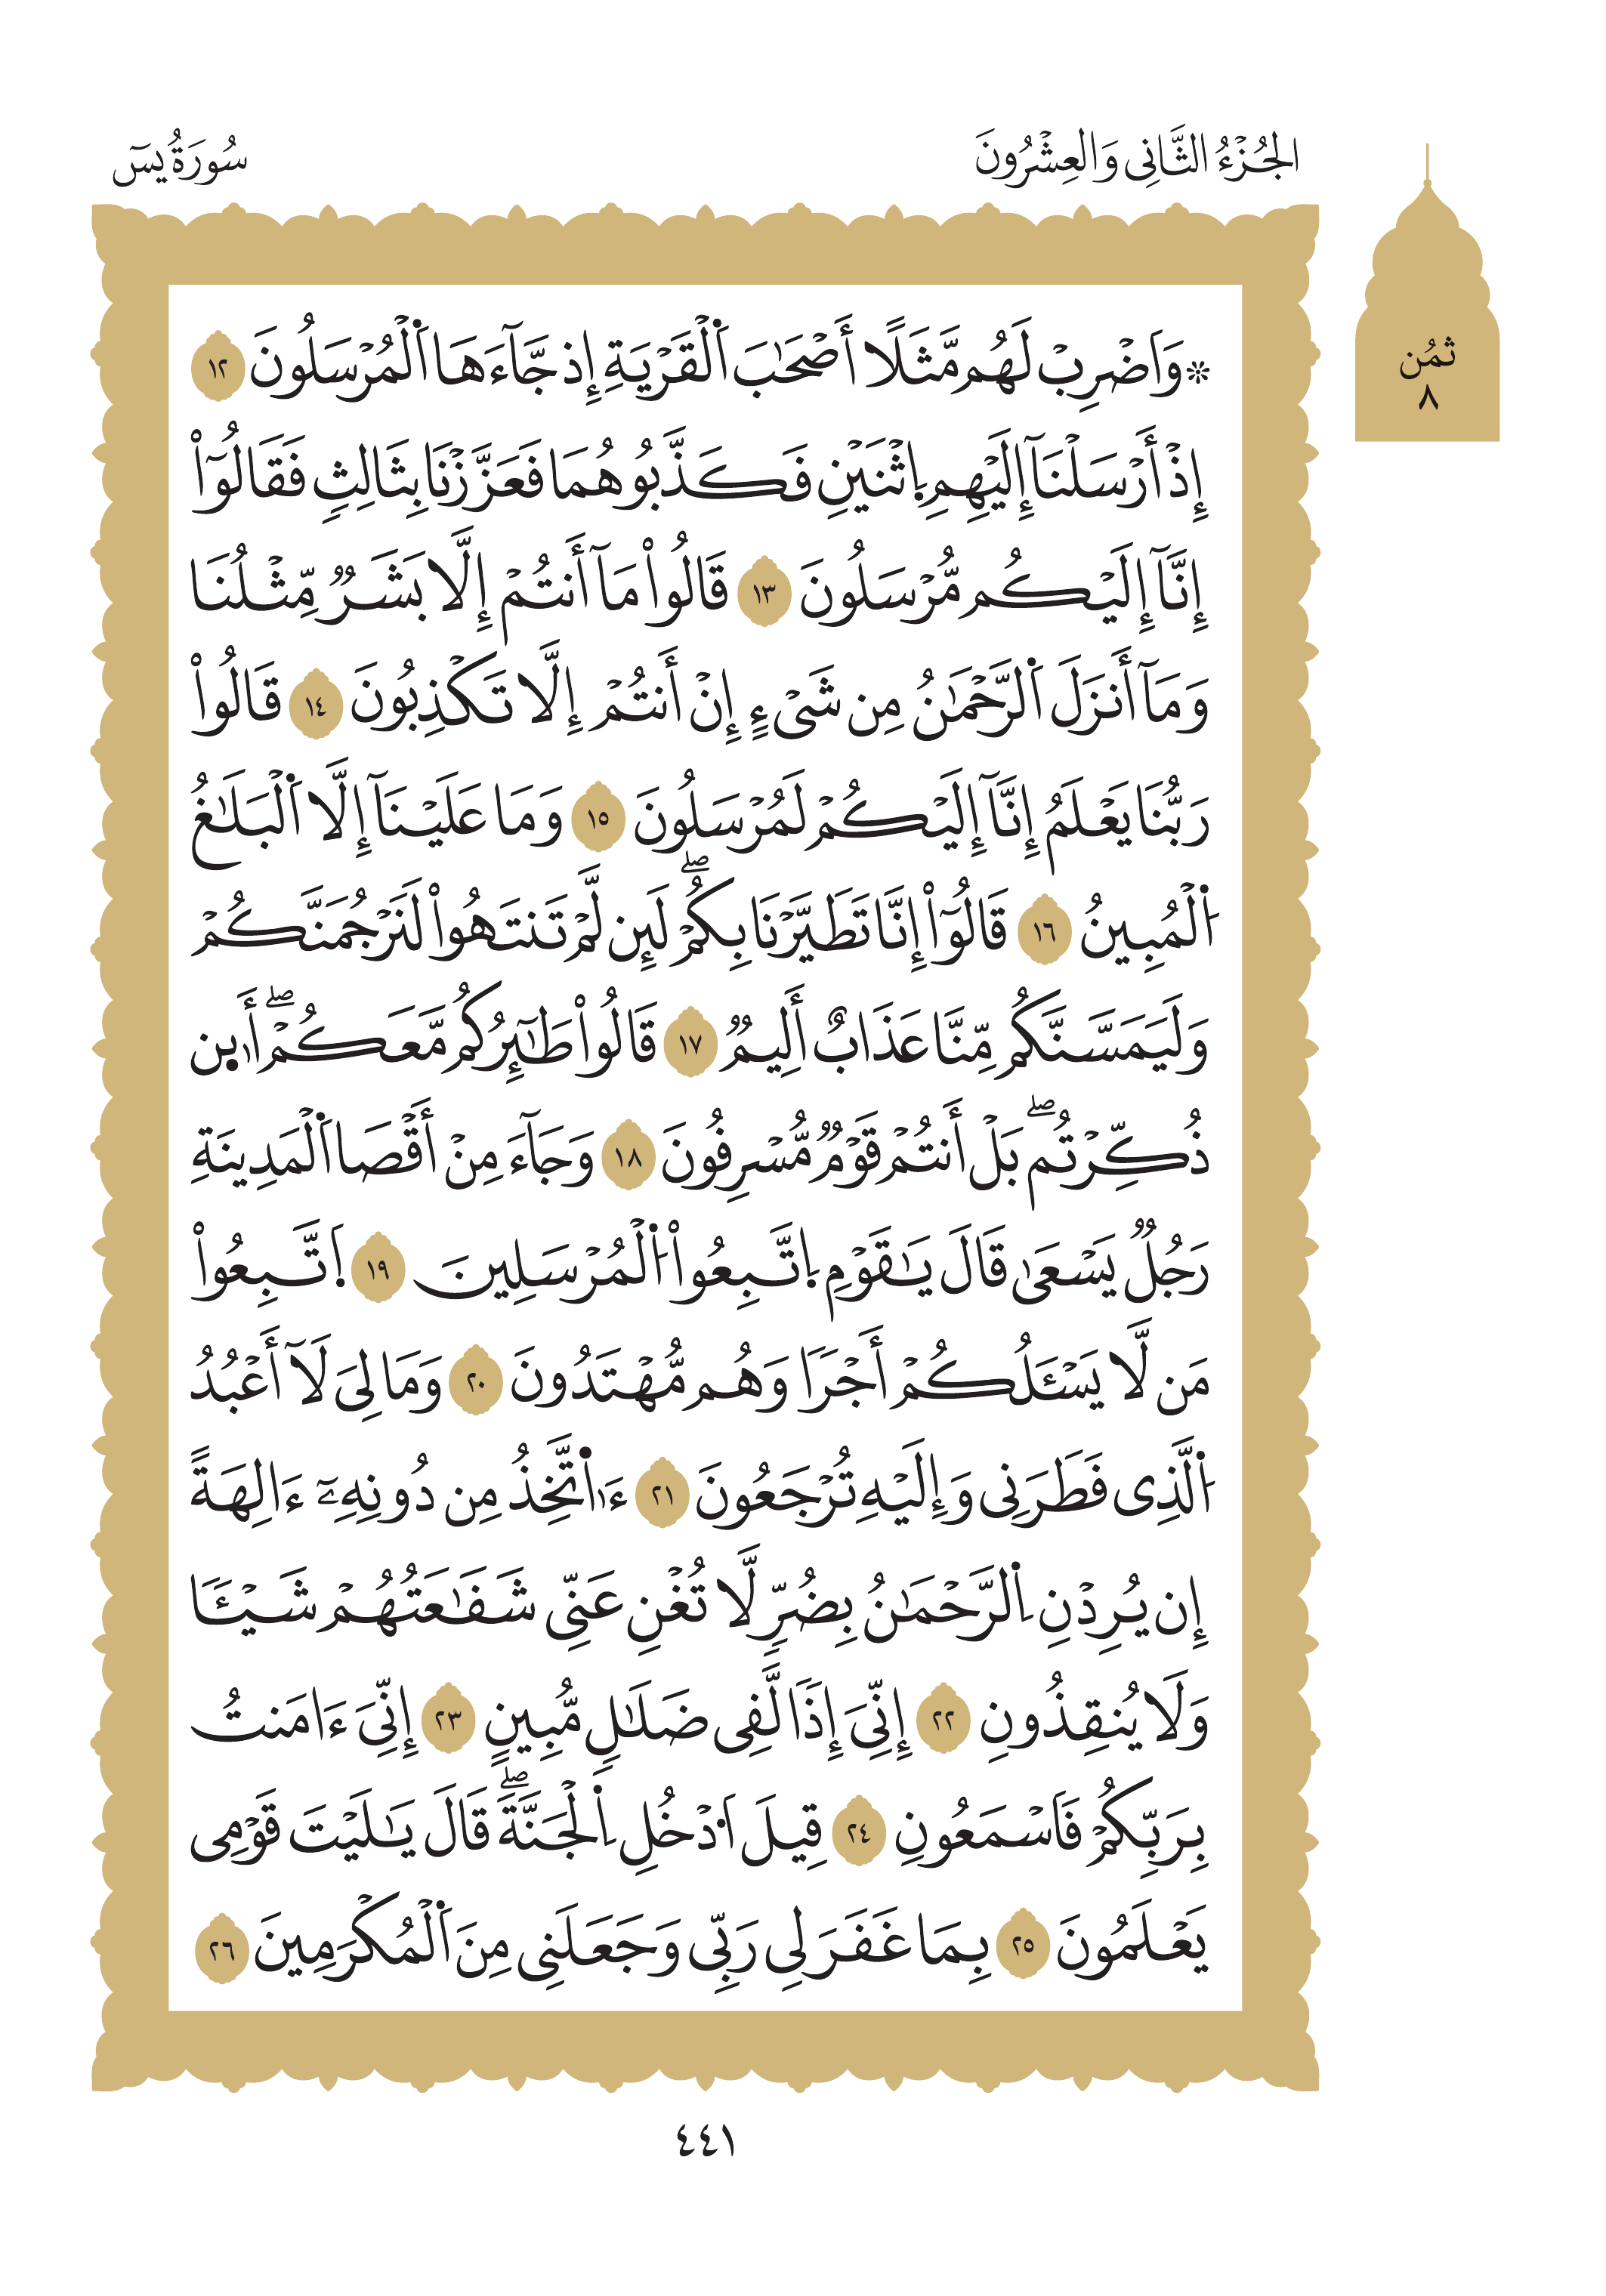 الجُزْءُ الثَّانِي وَالعِشْرُونَ
سُورَةُ يسٓ
ثمُن
٨
۞ وَاَضْرِبْ لَهُم مَّثَلًا أَصْحَٰبَ اَ۬لْقَرْيَةِ إِذ جَّآءَهَا اَ۬لْمُرْسَلُونَ ١٢
إِذْ أَرْسَلْنَآ إِلَيْهِمِ اِ۪ثْنَيْنِ فَكَذَّبُوهُمَا فَعَزَّزْنَا بِثَالِثٍ فَقَالُوٓاْ
إِنَّآ إِلَيْكُم مُّرْسَلُونَ ١٣ قَالُواْ مَآ أَنتُمْ إِلَّا بَشَرٌ مِّثْلُنَا
وَمَآ أَنزَلَ اَ۬لرَّحْمَٰنُ مِن شَيْءٍ إِنْ أَنتُمْ إِلَّا تَكْذِبُونَ ١٤ قَالُواْ
رَبُّنَا يَعْلَمُ إِنَّآ إِلَيْكُمْ لَمُرْسَلُونَ ١٥ وَمَا عَلَيْنَآ إِلَّا اَ۬لْبَلَٰغُ
اُ۬لْمُبِينُ ١٦ قَالُوٓاْ إِنَّا تَطَيَّرْنَا بِكُمْۖ لَئِن لَّمْ تَنتَهُواْ لَنَرْجُمَنَّكُمْ
وَلَيَمَسَّنَّكُم مِّنَّا عَذَابٌ أَلِيمٌ ١٧ قَالُواْ طَٰٓئِرُكُم مَّعَكُمْۖ أَاٜيِٕن
ذُكِّرْتُمۖ بَلْ أَنتُمْ قَوْمٌ مُّسْرِفُونَ ١٨ وَجَآءَ مِنْ أَقْصَا اَ۬لْمَدِينَةِ
رَجُلٌ يَسْعَىٰ قَالَ يَٰقَوْمِ اِ۪تَّبِعُواْ اُ۬لْمُرْسَلِينَ ١٩ اَ۪تَّبِعُواْ
مَن لَّا يَسْـَٔلُكُمْ أَجْرًا وَهُم مُّهْتَدُونَ ٢٠ وَمَا لِيَ لَآ أَعْبُدُ
اُ۬لَّذِي فَطَرَنِي وَإِلَيْهِ تُرْجَعُونَ ٢١ ءَاٰ۬تَّخِذُ مِن دُونِهِۦٓ ءَالِهَةً
إِن يُرِدْنِ اِ۬لرَّحْمَٰنُ بِضُرٍّ لَّا تُغْنِ عَنِّي شَفَٰعَتُهُمْ شَيْـًٔا
وَلَا يُنقِذُونِ ٢٢ إِنِّيَ إِذًا لَّفِي ضَلَٰلٍ مُّبِينٍ ٢٣ إِنِّيَ ءَامَنتُ
بِرَبِّكُمْ فَاَسْمَعُونِ ٢٤ قِيلَ اَ۟دْخُلِ اِ۬لْجَنَّةَۖ قَالَ يَٰلَيْتَ قَوْمِي
يَعْلَمُونَ ٢٥ بِمَا غَفَرَ لِي رَبِّي وَجَعَلَنِي مِنَ اَ۬لْمُكْرَمِينَ ٢٦
٤٤١